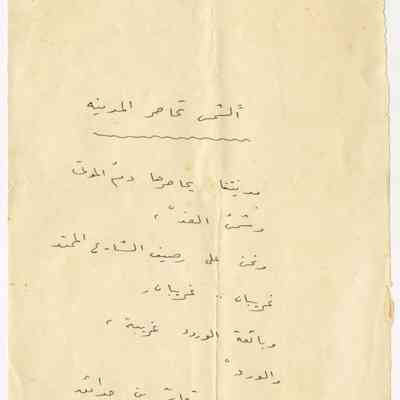 ألشمس تحاصر المدينه
مدينتنا يحاصرها دمُ الموتى
وشمسُ الغد،
ونحن على رصيف الشارع الممتد
غريبان .. غريبان،
وبائعة الورود غريبة،
والورد
من حدائق